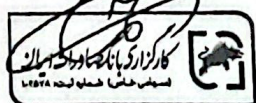 کارگزاری بانک صادرات ایران
(سهامی خاص) شماره ثبت: